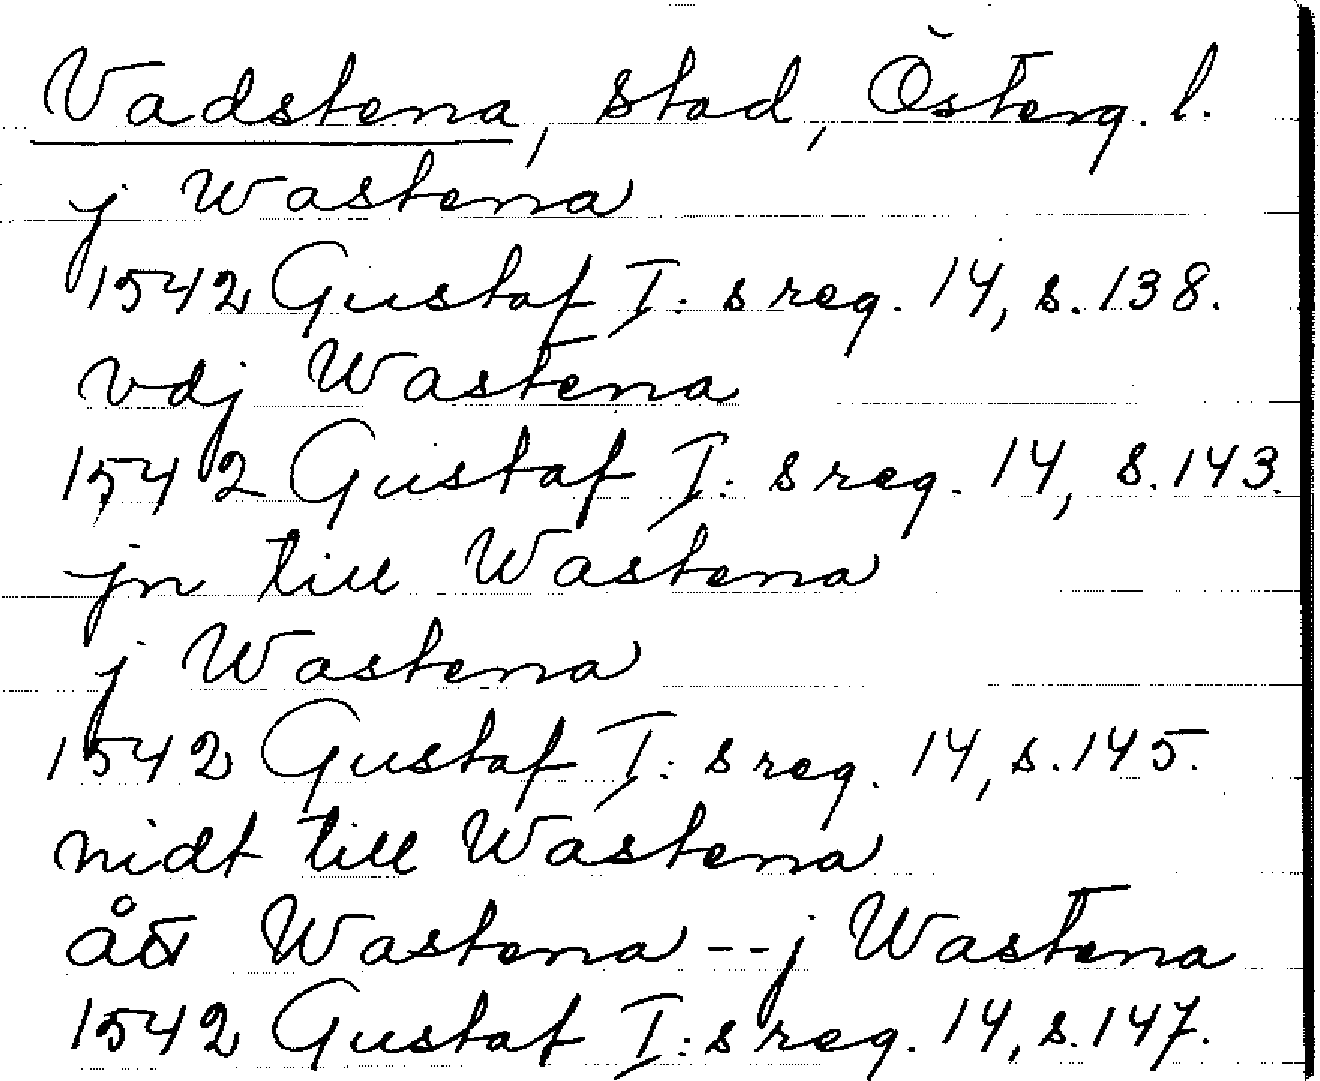 Vadstena, stad, Österg. l.
j Wastena
1542 Gustaf I: s reg. 14, s. 138.
vdj Wastena
1542 Gustaf I: s reg. 14, s. 143.
jn till Wastena
j Wastena
1542 Gustaf I: s reg. 14, s. 145.
nidt till Wastena
Wastena -- j Wastena
1542 Gustaf I: s reg. 14, s. 147.